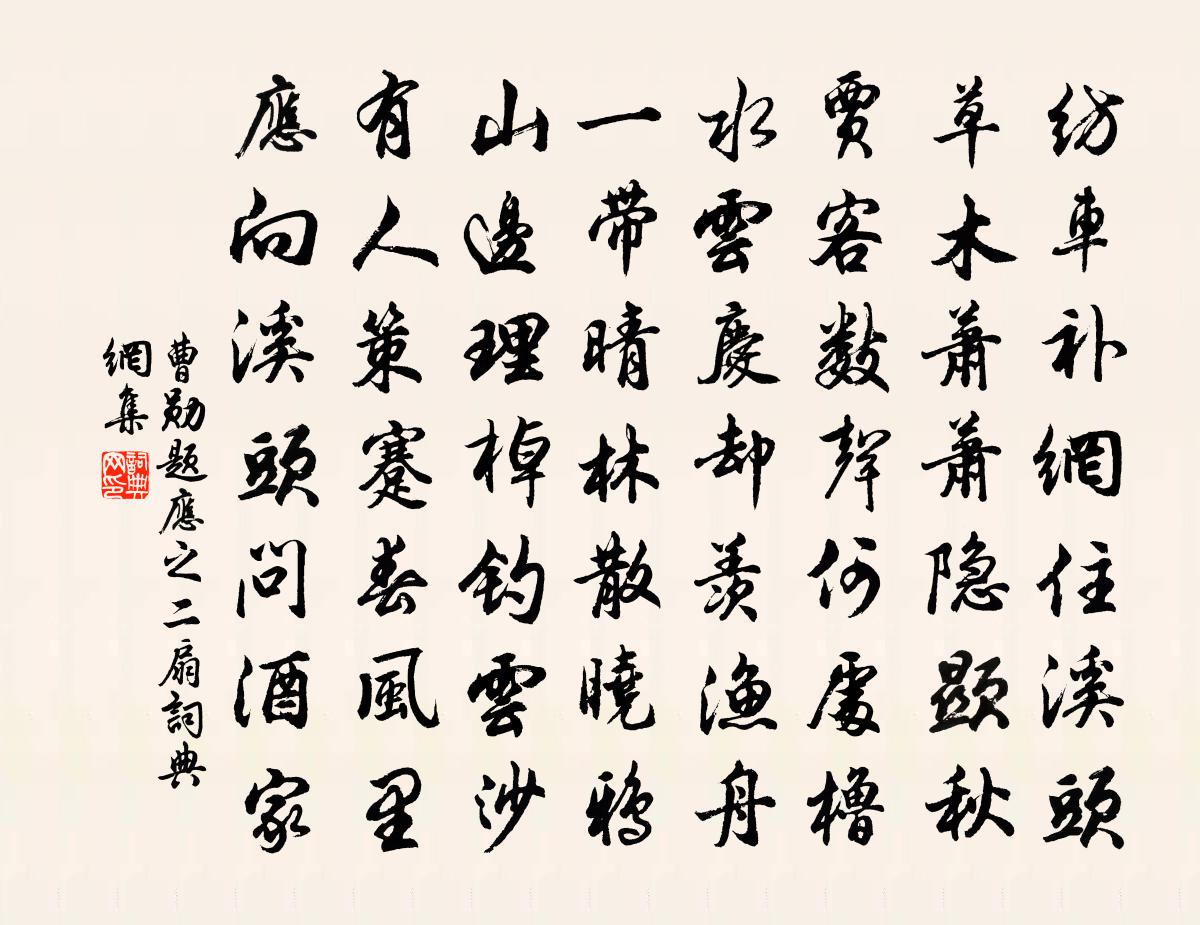 纺車补網住溪頭
草木蕭蕭隐顯秋
賈客數聲何處櫓
水雲慶却羨漁舟
一帶晴林散曉鴉
山邊理棹釣雲沙
有人策蹇春風里
應向溪頭問酒家
曹勛題應之二扇詞典
網集
詞典网印